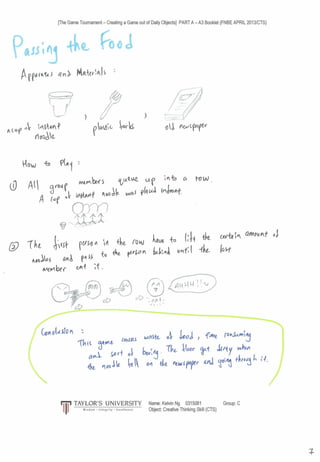 [The Game Tournament – Creating a Game out of Daily Objects] PART A – A3 Booklet (FNBE APRIL 2013/CTS)
Passing the Food
Apparatus and Materials :
a cup of instant noodle , plastic forks , old newspaper
How to Play :
① All group members queue up into a row.
A cup of instant noodle was placed infront.
② The first person in the row have to lift the certain amount of
noodles and pass to the person behind until the last
member eat it.
AHHH!!
Conclusion :
This game causes waste of food , time consuming
and sort of boring. The floor got dirty when
the noodle fell on the newspaper and going through it.
TAYLOR'S UNIVERSITY
Wisdom · Integrity · Excellence
Name: Kelvin Ng 0315081 Group: C
Object: Creative Thinking Skill (CTS)
7